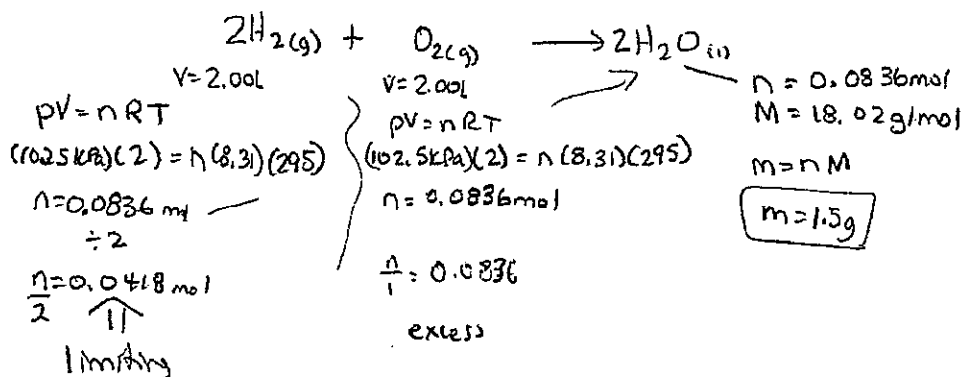 2H₂(g) + O₂(g) → 2H₂O(l)
V=2.00L
pV=nRT
(102.5kPa)(2) = n(8.31)(295)
n=0.0836 ml
÷2
n/2=0.0418 mol
limiting
V=2.00L
pV=nRT
(102.5kPa)(2) = n(8.31)(295)
n=0.0836mol
n/1=0.0836
excess
n=0.0836mol
M=18.02g/mol
m=nM
m=1.5g